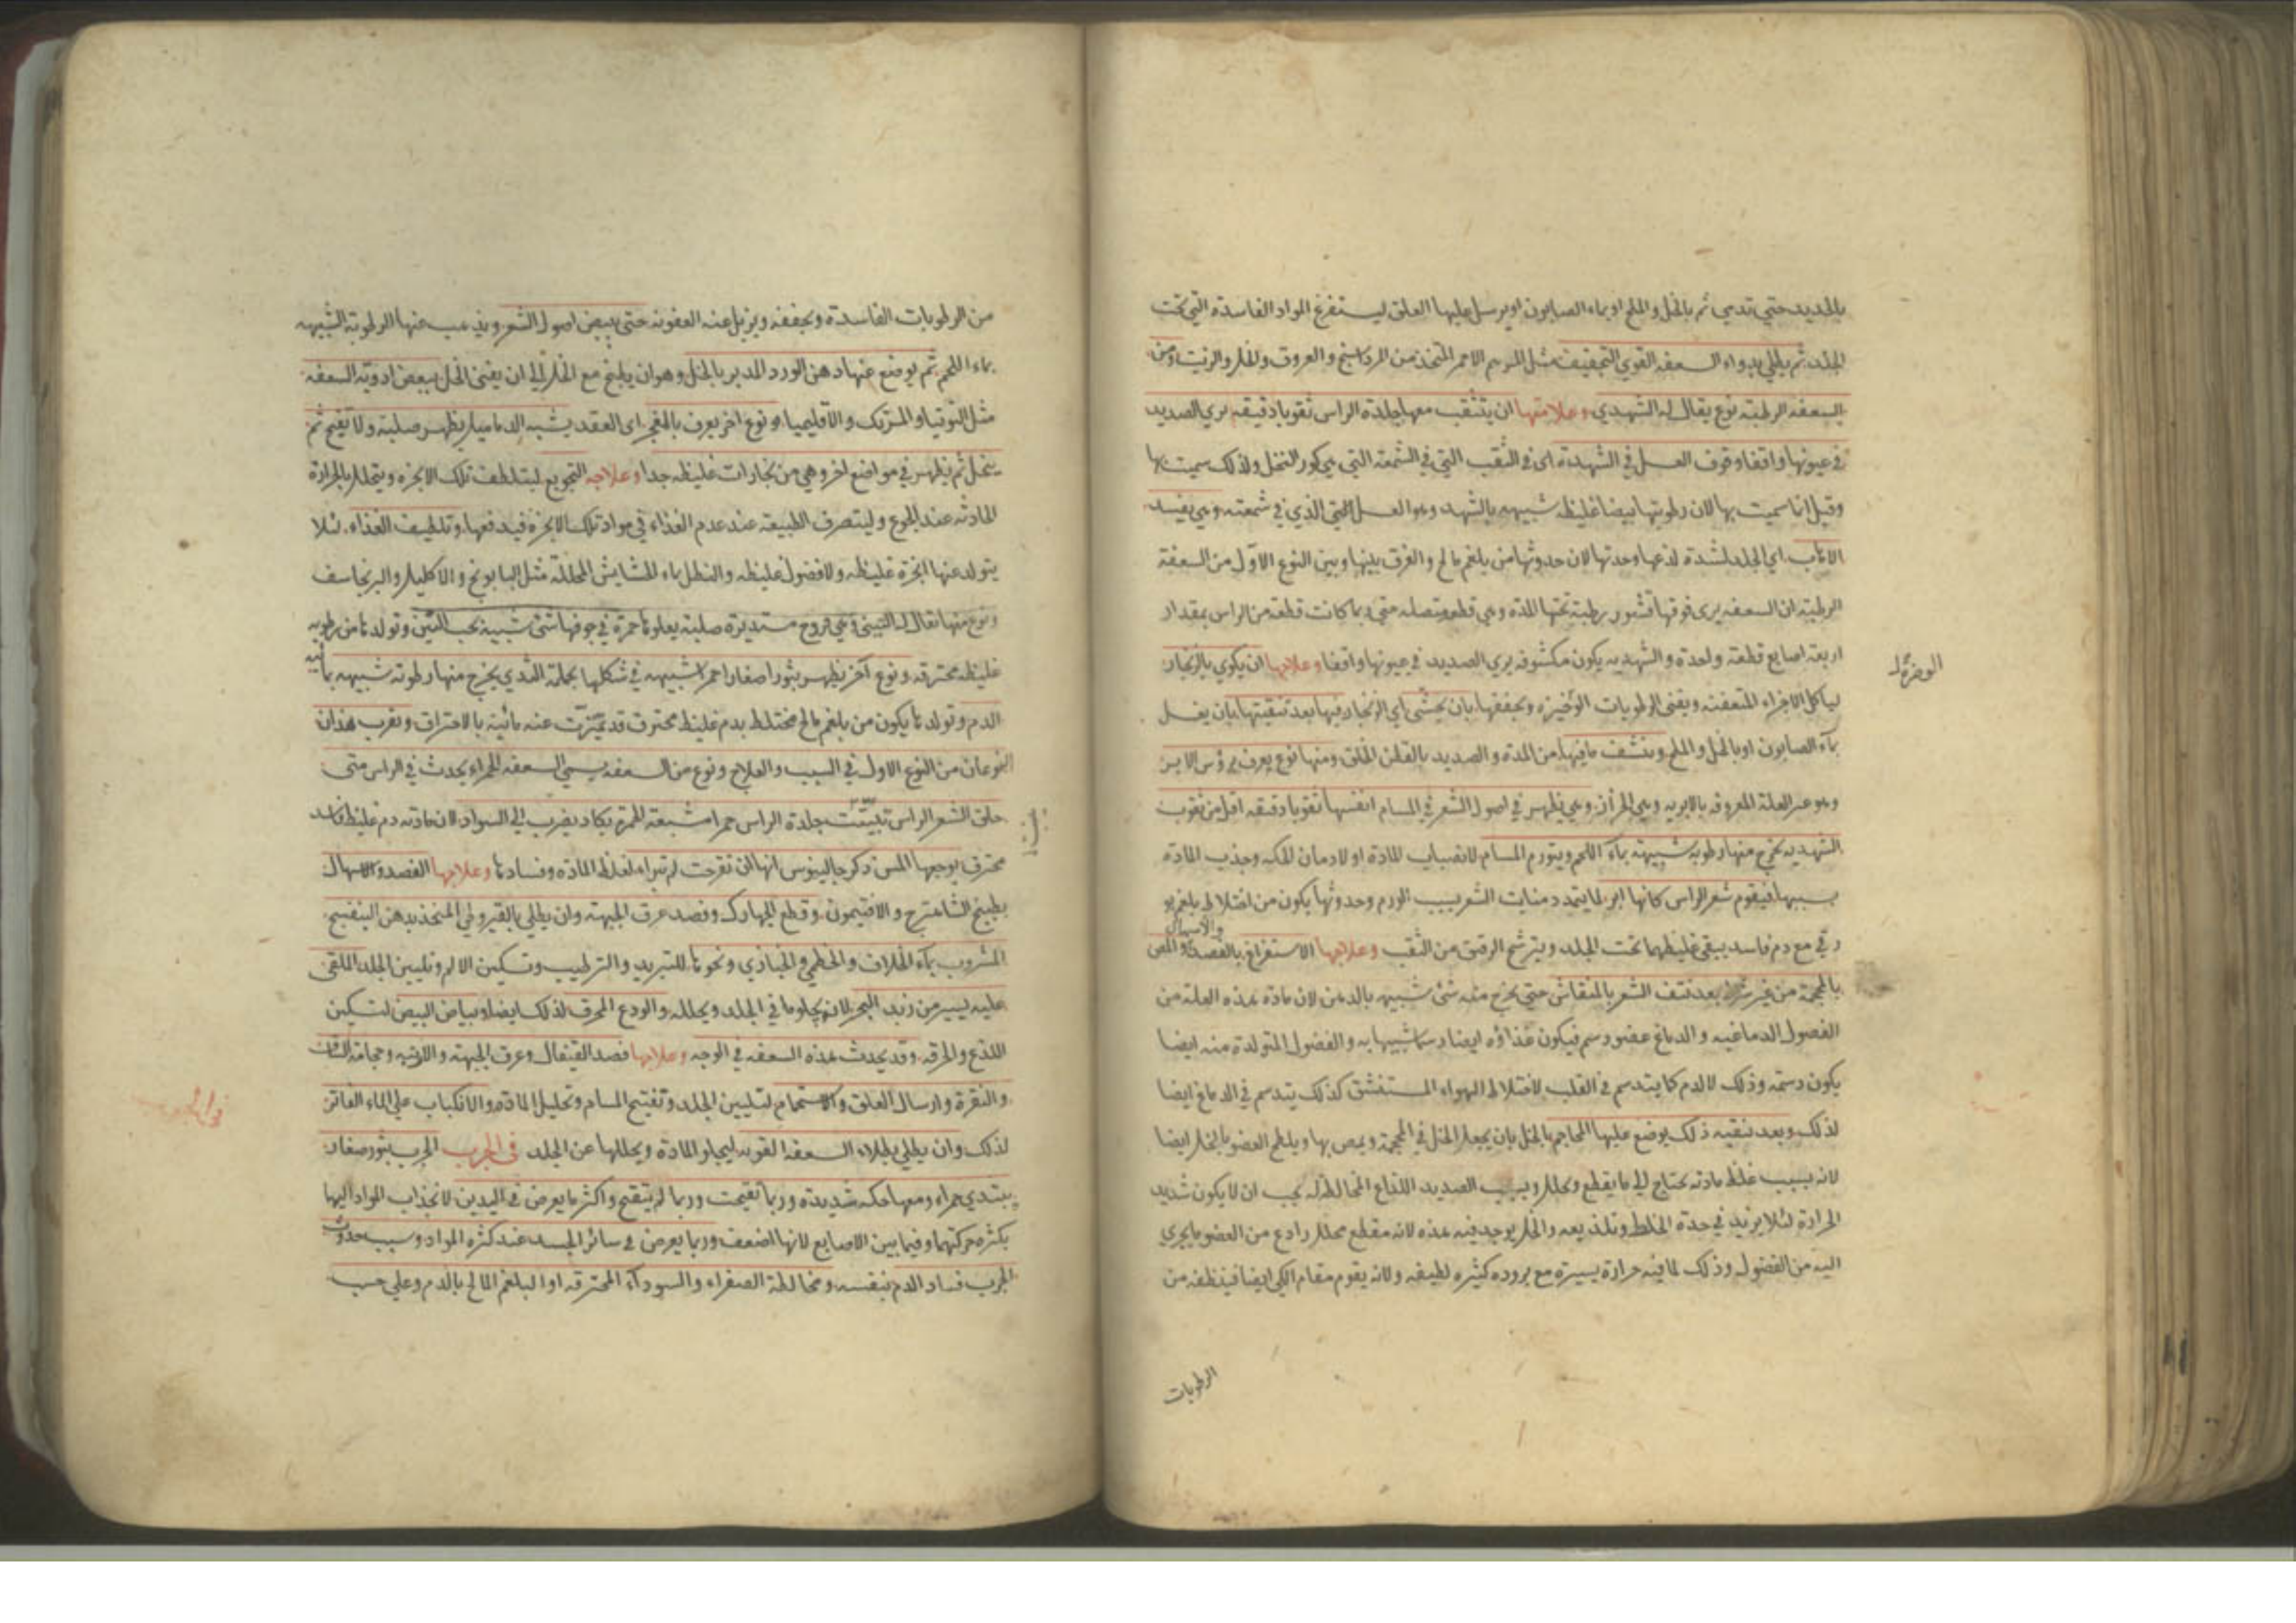 بالحديد حتي تدمي ثم بالخل والملح او بماء الصابون او يرسل عليها العلق ليستفرغ المواد الفاسدة التي تحت
الجلد ثم يطلي بدواء السعفه القوي التجفيف مثل المرهم الاحمر المتخذ من المرداسنج والعروق والخل والزيت ومن
السعفه الرطبة نوع يقال له الشهدي وعلامتها ان يتثقب معها جلدة الراس ثقوبا دقيقه يري الصديد
في عيونها واقفا وقوف العسل في الشهدة اى في الثقب التي في الشمعة التي هي كور النحل ولذلك سميت بها
وقيل انما سميت بها لان رطوبتها بيضا غليظه شبيهه بالشهد وهو العسل الذي في شمعته وهي يفسد
الاهاب اي الجلد لشدة لذعها وحدتها لان حدوثها من بلغم مالح والفرق بينها وبين النوع الاول من السعفة
الرطبة ان السعفه يرى فوقها قشور رطبة تحتها المدة وهي قطع متصله متي ربما كانت قطعة من الراس بمقدار
اربعة اصابع قطعة واحدة والشهديه يكون مكشوفه يري الصديد في عيونها واقفا وعلاجها ان يكوي بالزنجار
لياكل الاجزاء المتعفنة ويفنى الرطوبات ويجففها بان يحشى اي الزنجار فيها بعد تنقيتها بان يغسل
بماء الصابون او بالخل والملح وينشف ما فيها من المدة والصديد بالقطن الخلق ومنها نوع يعرف برؤس الابر
وهو غير العلة المعروفه بالابريه وهي الحزاز وهي يظهر في اصول الشعر في المسام انفسها ثقوبا دقيقه اقل من ثقوب
الشهديه يخرج منها رطوبه شبيهه بماء اللحم ويتورم المسام لانصباب المادة او لادمان الحكه وجذب المادة
بسببها فيقوم شعر الراس كانها ابر لما يتمدد منابت الشعر بسبب الورم وحدوثها يكون من اختلاط بلغم بو
رقي مع دم فاسد يبقي غليظهما تحت الجلد ويترشح الرقيق من الثقب وعلاجها الاستفراغ بالفصد والاسهال والمص
بالمحجمة من غير شرط بعد نتف الشعر بالمنقاش حتي يخرج منه شئ شبيه بالدهن لان مادة هذه العلة من
الفضول الدماغيه والدماغ عضو دسم فيكون غذاؤه ايضا دسما شبيها به والفضول المتولدة منه ايضا
يكون دسمة وذلك لالدم كما يتدسم في القلب لاختلاط الهواء المستنشق كذلك يتدسم في الدماغ ايضا
لذلك وبعد تنقيه ذلك يوضع عليها المحاجم بالخل بان يجعل الخل في المحجمة ويمص بها ويلطخ العضو بالخل ايضا
لانه بسبب غلظ مادته يحتاج الي ما يقطع ويحلل وبسبب الصديد اللذاع المخالط له يجب ان لا يكون شديد
الحرارة لئلا يزيد في حدة الخلط وتلذيعه والخل يوجد فيه هذه لانه مقطع محلل رادع من العضو ما يجري
اليه من الفضول وذلك لما فيه حرارة يسيرة مع بروده كثيره لطيفه ولانه يقوم مقام الكي ايضا فينظفه من
الرطوبات
من الرطوبات الفاسدة ويجففه ويزيل عنه العفونه حتى يبيض اصول الشعر ويذهب عنها الرطوبة الشبيهه
بماء اللحم ثم يوضع عنها دهن الورد المدبر بالخل وهو ان يطبخ مع الخل الي ان يفنى الخل ببعض ادوية السعفه
مثل التوتيا والمرتك والاقليميا ونوع اخر يعرف بالعجر اى العقد يشبه الدماميل يظهر صلبة ولا يفتح ثم
ينحل ثم يظهر في مواضع اخر وهي من بخارات غليظه جدا وعلاجه التجويع ليتلطف تلك الابخره ويتحلل بالحرارة
الحادثه عند الجوع وليتصرف الطبيعة عند عدم الغذاء في مواد تلك الابخرة فيدفعها وتلطيف الغذاء لئلا
يتولد عنها ابخرة غليظه ولا فضول غليظه والنطل بماء الحشايش المحللة مثل البابونج والاكليل والبرنجاسف
ونوع منها يقال له التيني وهي قروح مستديرة صلبة يعلوها حمرة في جوفها شئ شبيه بحب التين وتولدها من رطوبه
غليظه محترقه ونوع آخر يظهر بثور اصغار احمر شبيهه في شكلها بحلمة الثدي يخرج منها رطوبه شبيهه بمائيه
الدم وتولدها يكون من بلغم مالح مختلط بدم غليظ محترق قد تميزت عنه مائيه بالاحتراق ويقرب هذان
النوعان من النوع الاول في السبب والعلاج ونوع من السعفه يسمى السعفه الحمراء يحدث في الراس متى
حلق الشعر الراس تبينت جلدة الراس حمرا مشبعة الحمرة يكاد يضرب الي السواد لان مادته دم غليظ فاسد
محترق يوجعها المس ذكر جالينوس انها ان تقرحت لم تبراء لغلظ المادة وفسادها وعلاجها الفصد والاسهال
بطبيخ الشاهترج والافتيمون وقطع الجهارك وفصد عرق الجبهة وان يطلي بالقيروطي المتخذ بدهن البنفسج
المشروب بماء الخلاف والخطمي والخبازي ونحوها للتبريد والترطيب وتسكين الالم وتليين الجلد الملقى
عليه يسير من زبد البحر لانه يجلو ما في الجلد ويحلله والودع المحرق لذلك ايضا وبياض البيض لتسكين
اللذع والحرقة وقد يحدث هذه السعفه في الوجه وعلاجها فصد القيفال وعرق الجبهة والارنبه وحجامة الساق
والنقرة وارسال العلق والاستحمام لتليين الجلد وتفتيح المسام وتحليل المادة والانكباب علي الماء الفاتر
لذلك وان يطلي بطلاء السعفه القويه ليجلو المادة ويحللها عن الجلد في الجرب الجرب بثور صغار
يبتدي حمراء ومعها حكه شديدة وربما تقيحت وربما لم يتقيح واكثر ما يعرض في اليدين لانجذاب المواد اليها
بكثره حركتهما وفيما بين الاصابع لانها اضعف وربما يعرض في سائر الجسد عند كثرة المواد وسبب حدوث
الجرب فساد الدم بنفسه ومخالطة الصفراء والسوداء المحترقه او البلغم المالح بالدم وعلي حسب